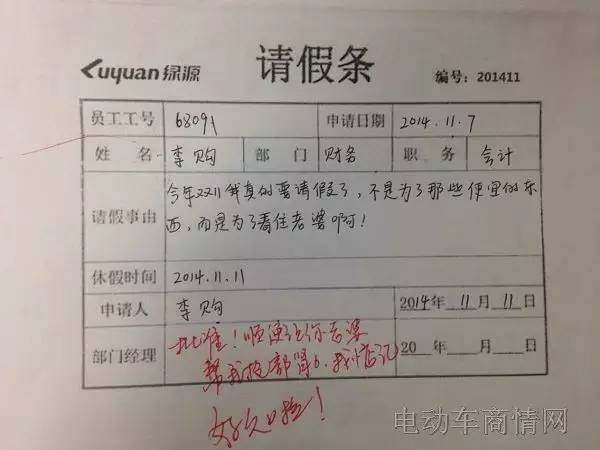 Luyuan 绿源 请假条 编号：201411
员工工号 68091 申请日期 2014.11.7
姓名 李购 部门 财务 职务 会计
请假事由 今年双11我真的要请假了，不是为了那些便宜的东
西，而是为了看住老婆啊！
休假时间 2014.11.11
申请人 李购 2014年11月11日
部门经理 批准！顺便让你老婆 20 年 月 日
帮我抢部肾6，我惦记
好久啦！
电动车商情网